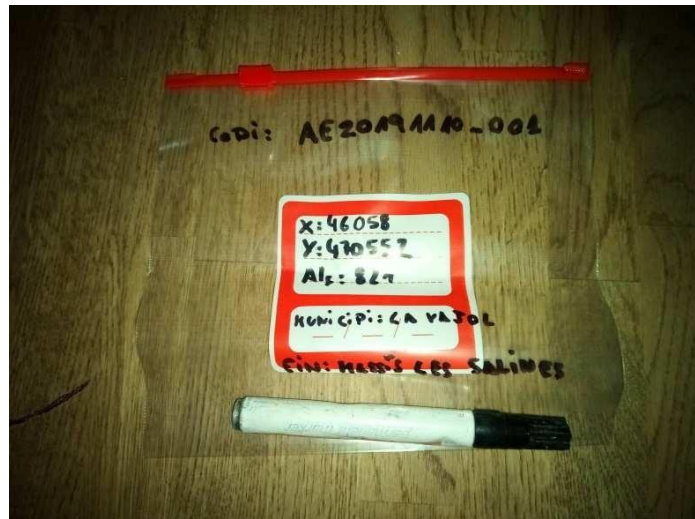 CODI: AE20191110_001
X: 46058
Y: 470552
Alt: 827
MUNICIPI: LA VAJOL
EIN: MASSÍS LES SALINES